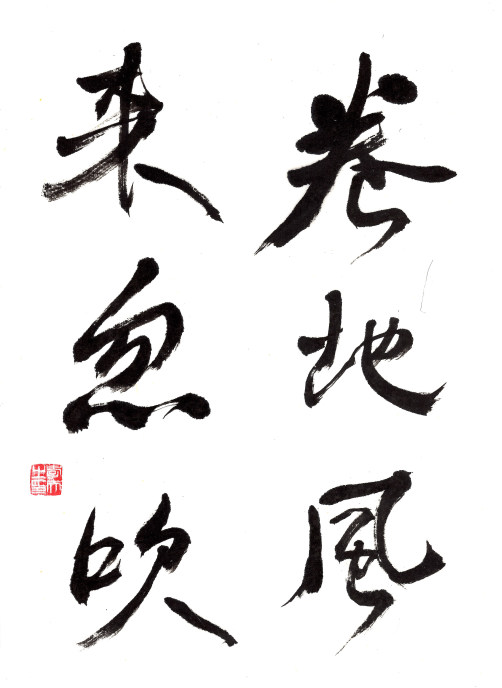 卷地風
来忽吹